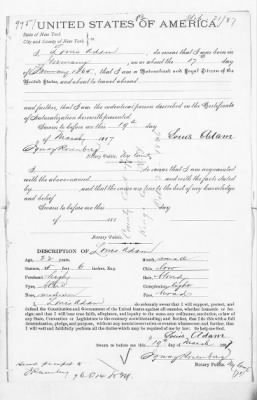 UNITED STATES OF AMERICA.
State of New York
City and County of New York
I, Louis Adam do swear that I was born in
Germany on or about the 17th day
of January 1865, that I am a Naturalized and Loyal Citizen of the
United States, and about to travel abroad
and further, that I am the identical person described in the Certificate
of Naturalization herewith presented.
Sworn to before me this 19th day
of March 1887 Louis Adam
Ignaz Rosenberg
Notary Public,
I do swear that I am acquainted
with the above named and with the facts stated
by and that the same are true to the best of my knowledge
and belief.
Sworn to before me this
day
of 188
Notary Public.
DESCRIPTION OF Louis Adam
Age, 22 years. Mouth, small
Stature, 5 feet 6 inches, Eng. Chin,
Forehead, Hair, Blond
Eyes, Complexion, light
Nose, medium Face, broad
I, Louis Adam do solemnly swear that I will support, protect, and
defend the Constitution and Government of the United States against all enemies, whether domestic or
foreign, and that I will bear true faith, allegiance, and loyalty to the same, any ordinance, resolution, or law of
any State, Convention or Legislature to the contrary notwithstanding; and further, that I do this with a full
determination, pledge, and purpose, without any mental reservation or evasion whatsoever; and further,
that I will well and faithfully perform all the duties which may be required of me by law. So help me God.
Louis Adam
Sworn to before me, this
19th day of March 1887
Ignaz Rosenberg
Notary Public